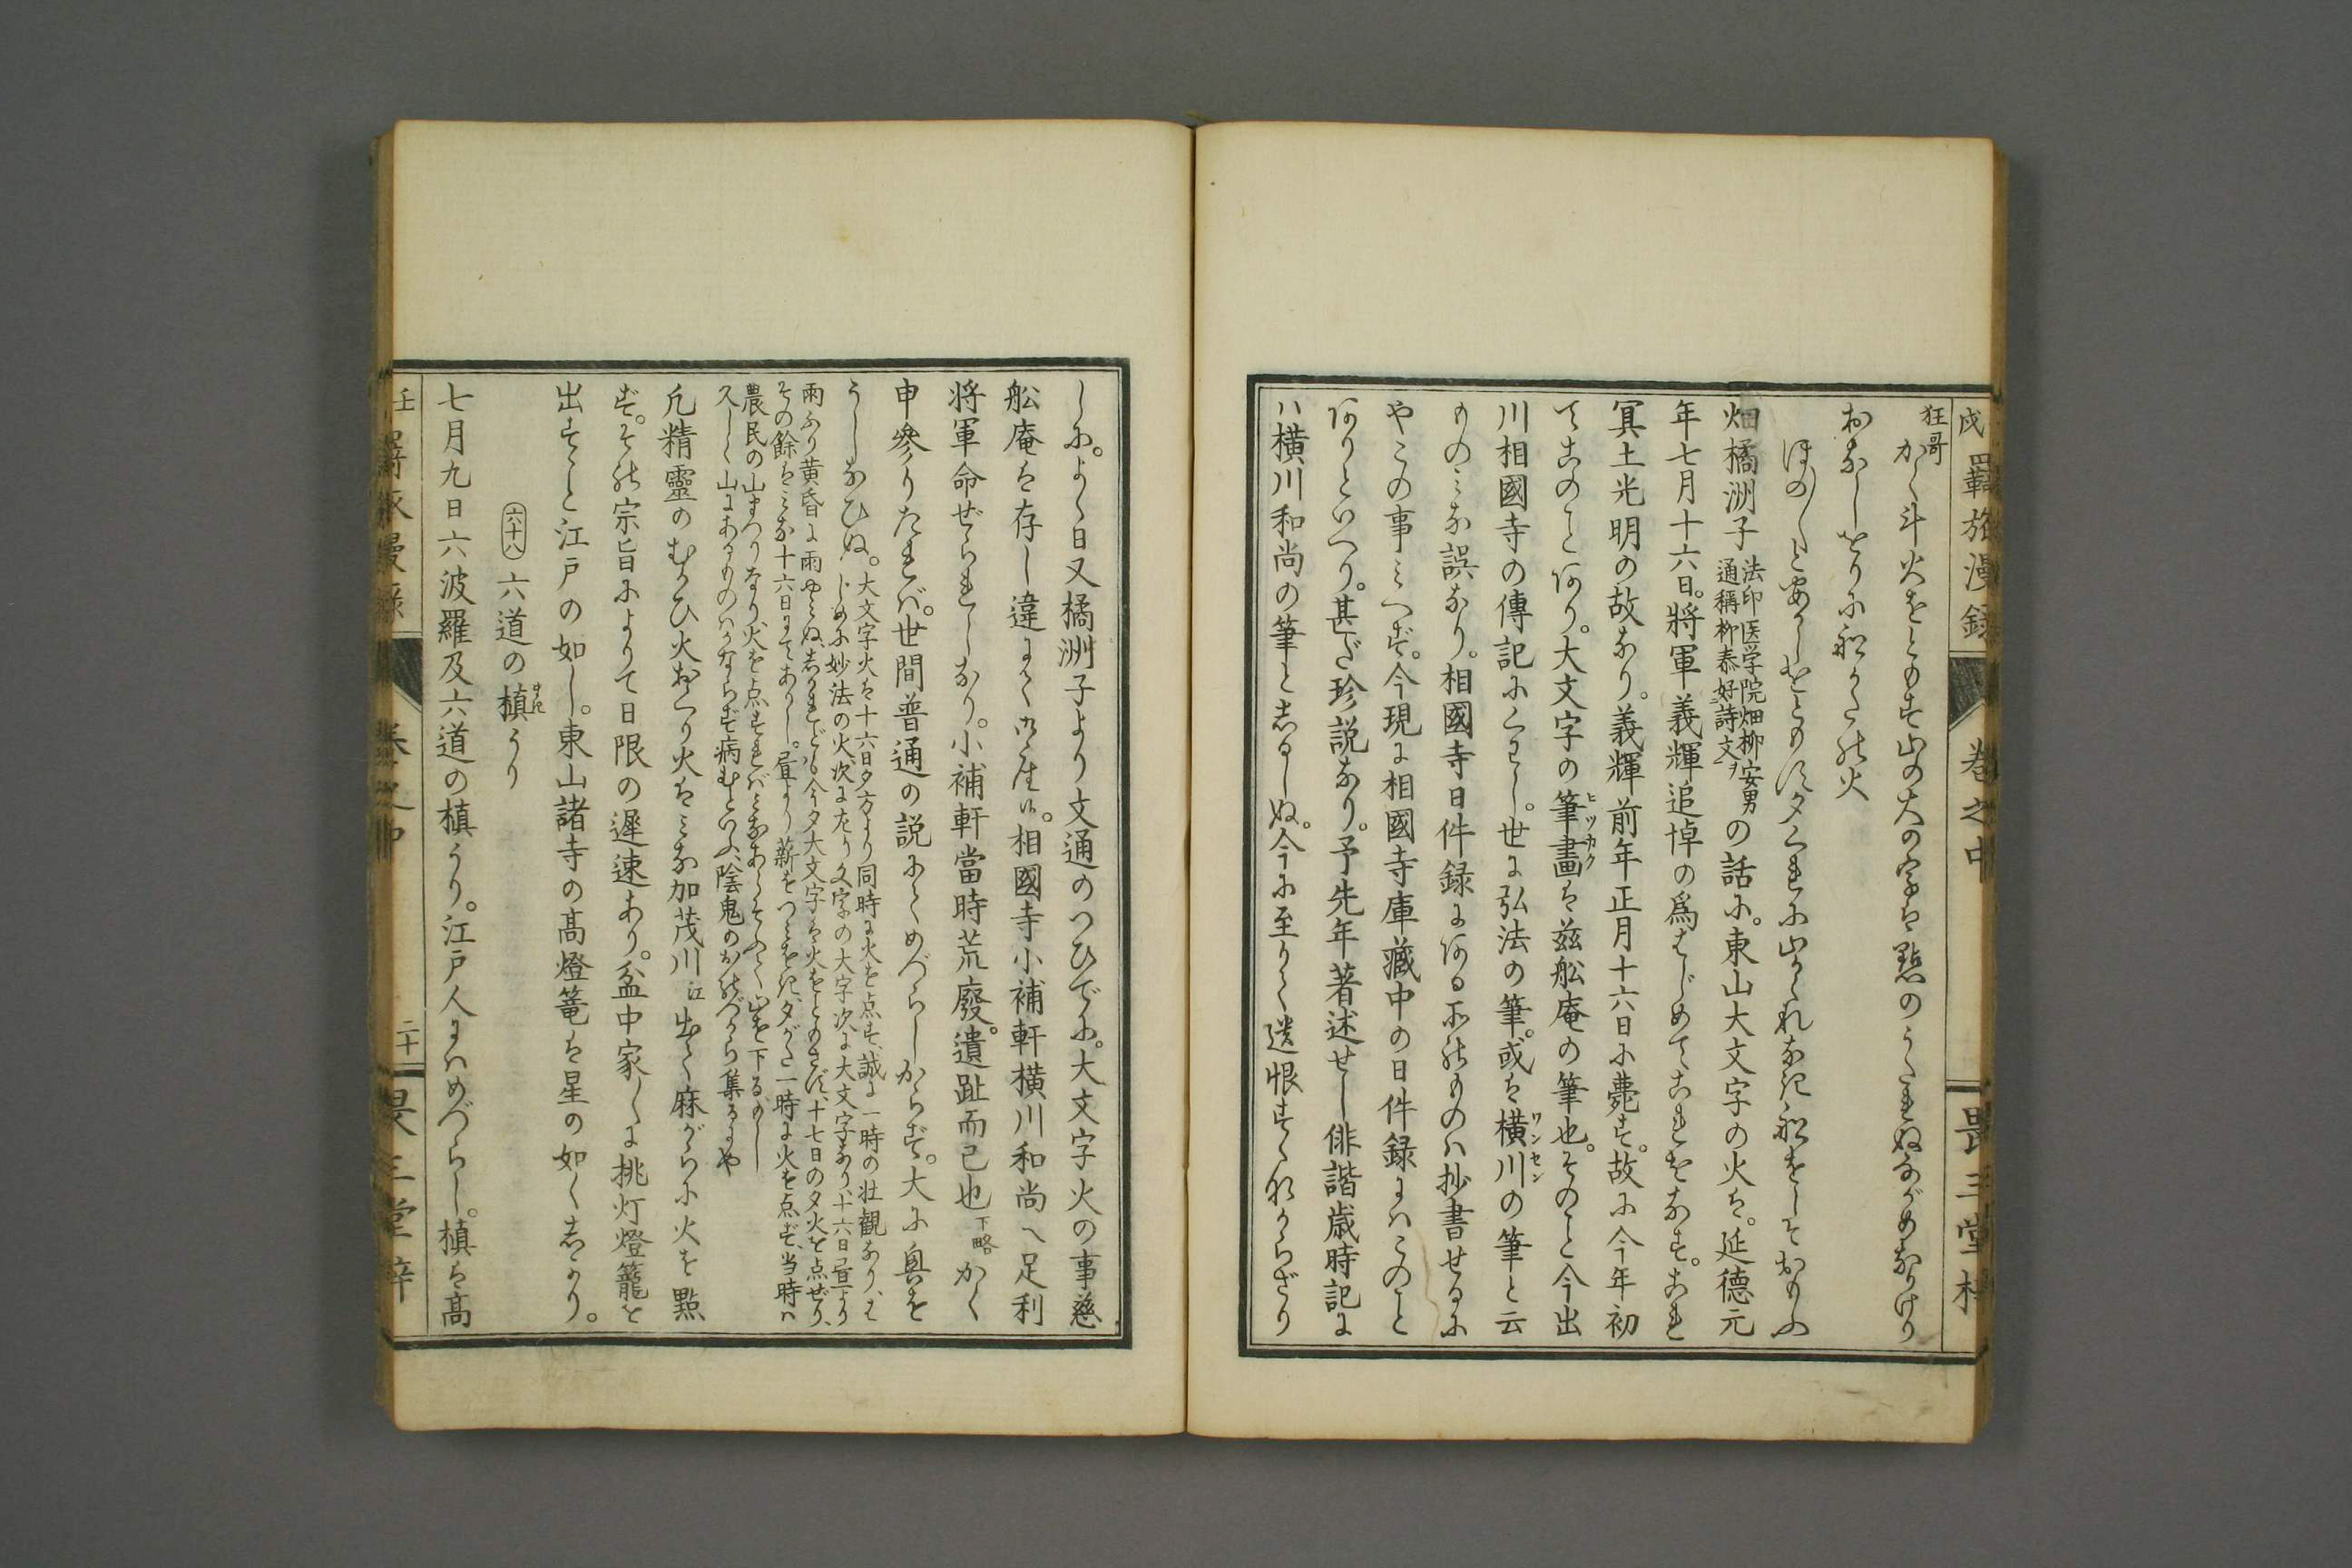 戌 羇旅漫録 巻之中 畏三堂梓
狂哥 かく斗火をともす山の大の字を點のうたれぬながめなりけり
おなしをりに船かた の火
ほの〳〵と 夕くれに山かくれなき船をしそおもふ
畑橘洲子 法印医学院畑柳安男 通稱柳泰好詩文ヲ の話に。東山大文字の火を。延徳元
年七月十六日。將軍義輝追悼の爲はじめてこれをなす。これ
冥土光明の故なり。義輝前年正月十六日に薨す。故に今年初
てこのことあり。大文字の筆畫を玆舩庵の筆也。そのこと今出
川相國寺の傳記にくはし。世に弘法の筆。或を横川の筆と云
ものみな誤なり。相國寺日件録にある所のものハ抄書せるに
やこの事みへず。今現に相國寺庫藏中の日件録にハこのこと
ありといへり。甚だ珍説なり。予先年著述せし俳諧歳時記に
ハ横川和尚の筆としるしぬ。今に至りて遺恨すくなからざり
しに。よく日又橘洲子より文通のつひでに。大文字火の事慈
舩庵を存し違にて御座候。相國寺小補軒横川和尚へ足利
将軍命ぜられしなり。小補軒當時荒廢。遺趾而已也 下略 かく
申參りたれバ。世間普通の説にてめづらしからず。大に興を
うしなひぬ。大文字火を十六日夕方より同時に火を点す、誠に一時の壮観なり、は
じめに妙法の火、次に左り文字の大字次に大文字なり、十六日昼より
雨ふり黄昏に雨やみぬ、しかれども今夕大文字を火をともさず、十七日の夕火を点ぜり、
その餘をみな十六日にてありし。昼より薪をつみをき、夕がた一時に火を点ず、当時ハ
農民の山まつりなり、火を点すれバみなあらそふて山を下るよし
久しく山にあるものハかならず病むといふ、陰鬼のおのづから集るにや
凡精靈のむかひ火おくり火をみな加茂川江出て麻がらに火を點
ず。その宗旨によりて日限の遲速あり。盆中家々に挑灯燈籠を
出すこと江戸の如し。東山諸寺の高燈篭を星の如くしるり。
六十八 六道の槙うり
七月九日六波羅及六道の槙うり。江戸人にハめづらし。槙を高
壬 羇旅漫録 巻之中 二十 畏三堂梓